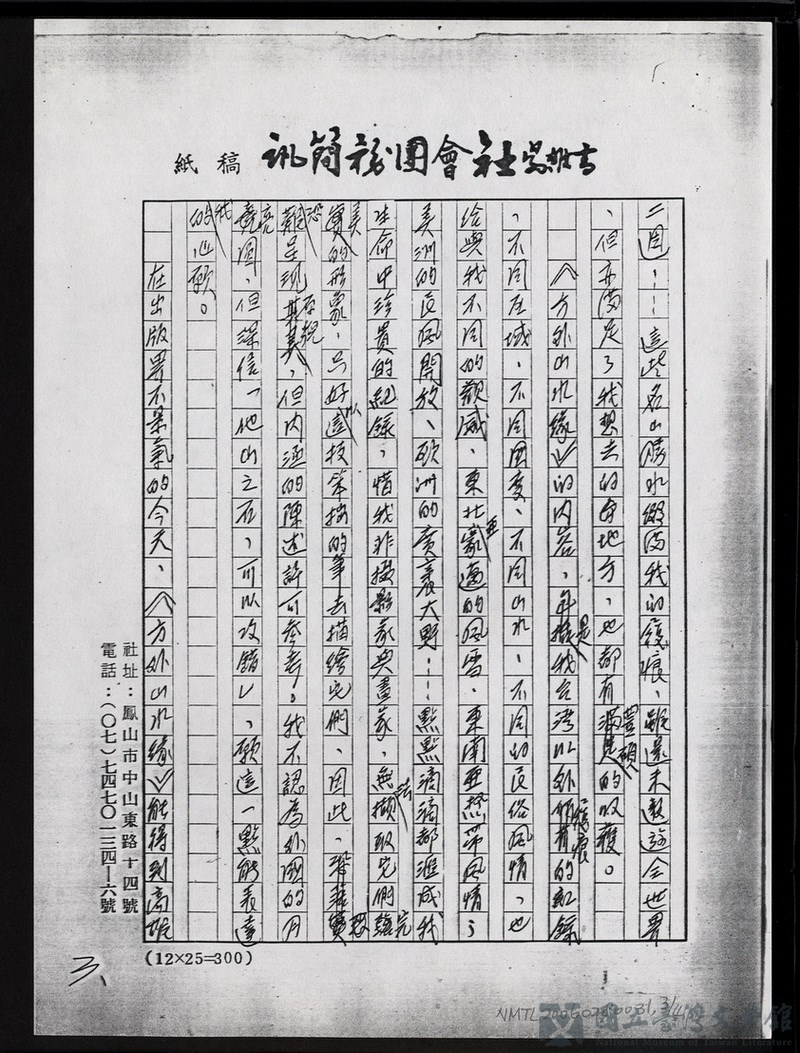 紙稿 訊簡務團會社
二週……這些名山勝水綴滿我的履痕，雖還未遊全世界
，但亦滿足了我想去的每地方，也都有豐碩的收穫。
《方外山水緣》的內容，是我台灣以外履痕的紀錄
，不同區域、不同國度、不同山水、不同的民俗風情，也
給與我不同的觀感，東北亞的風雪，東南亞熱帶風情，
美洲的民風開放、歐洲的廣袤大野……點點滴滴都匯成我
生命中珍貴的紀錄，惜我非攝影家與畫家，無法擷取它們完
美的形象，只好以這枝笨拙的筆去描繪它們，因此，
恐難呈現其原貌，但內涵的陳述許可參考。我不認為外國的月
亮圓，但深信「他山之石，可以攻錯」，願這一點能表達
我的心願。
在出版界不景氣的今天，《方外山水緣》能得到高雄
社址：鳳山市中山東路十四號
電話：（〇七）七四七〇一三四—六號
(12×25=300)
3、
國立臺灣文學館
National Museum of Taiwan Literature